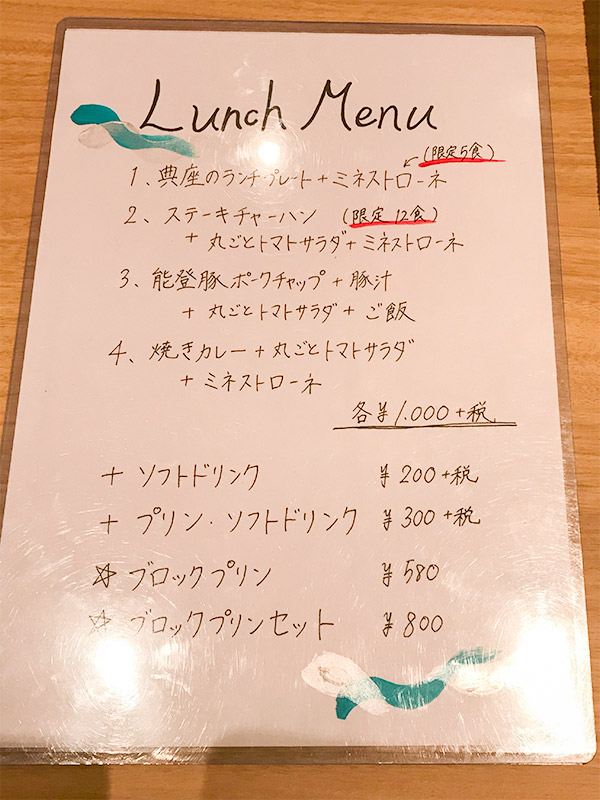 Lunch Menu
(限定5食)
1、典座のランチプレート+ミネストローネ
2、ステーキチャーハン (限定12食)
+ 丸ごとトマトサラダ+ミネストローネ
3、能登豚ポークチャップ+豚汁
+ 丸ごとトマトサラダ+ご飯
4、焼きカレー+丸ごとトマトサラダ
+ミネストローネ
各¥1.000+税
+ ソフトドリンク ¥200+税
+ プリン・ソフトドリンク ¥300+税
☆ブロックプリン ¥580
☆ブロックプリンセット ¥800